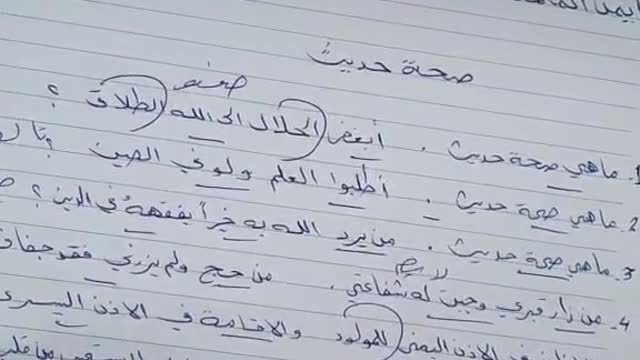 صحة حديث
ضعيف
1. ماهي صحة حديث. أبغض الحلال الى الله الطلاق ؟
2. ماهي صحة حديث. أطلبوا العلم ولو في الصين ؟
3. ماهي صحة حديث. من يرد الله به خيراً يفقهه في الدين ؟
لا يصح
4. من زار قبري وجبت له شفاعتي. من حج ولم يزرني فقد جفاني
في الاذن اليمنى للمولود والاقامة في الاذن اليسرى